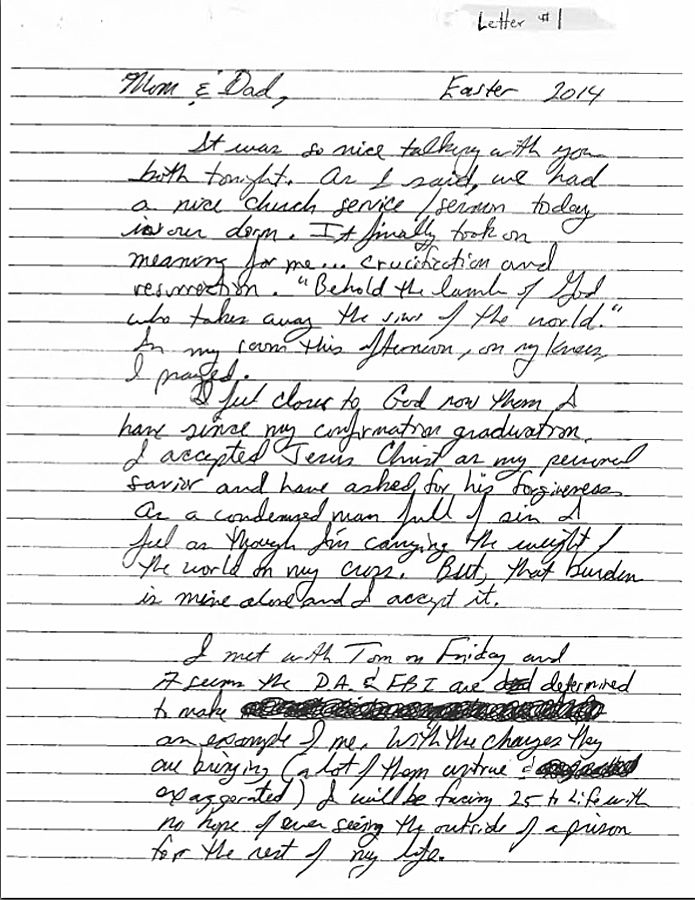 Letter #1
Mom & Dad, Easter 2014
It was so nice talking with you
both tonight. As I said, we had
a nice church service/sermon today
in our dorm. It finally took on
meaning for me... crucifixion and
resurrection. "Behold the lamb of God
who takes away the sins of the world."
In my room this afternoon, on my knees,
I prayed.
I feel closer to God now than I
have since my confirmation graduation.
I accepted Jesus Christ as my personal
savior and have asked for his forgiveness.
As a condemned man full of sin I
feel as though I'm carrying the weight of
the world on my cross. But, that burden
is mine alone and I accept it.
I met with Tom on Friday and
it seems the DA & FBI are determined
to make
an example of me. With the charges they
are bringing (a lot of them untrue &
exaggerated) I will be facing 25 to Life with
no hope of ever seeing the outside of a prison
for the rest of my life.